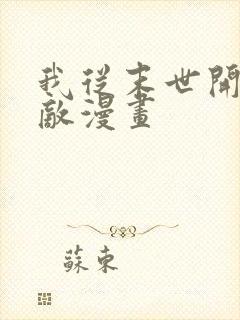 我從末世開
敵漫畫
蘇東